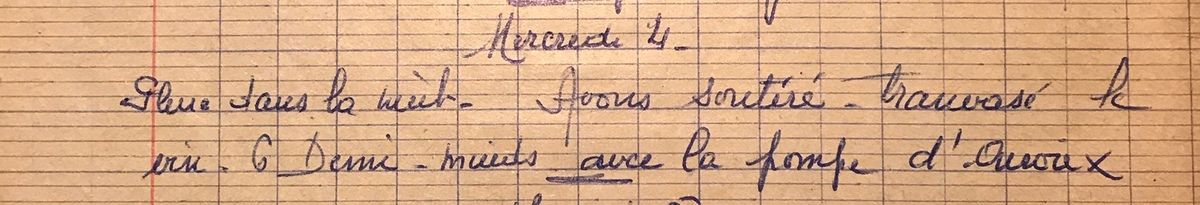 Mercredi 4 -
Pluie dans la nuit - Avons soutiré - tranvasé le
vin - 6 Demi - muids avec la pompe d'